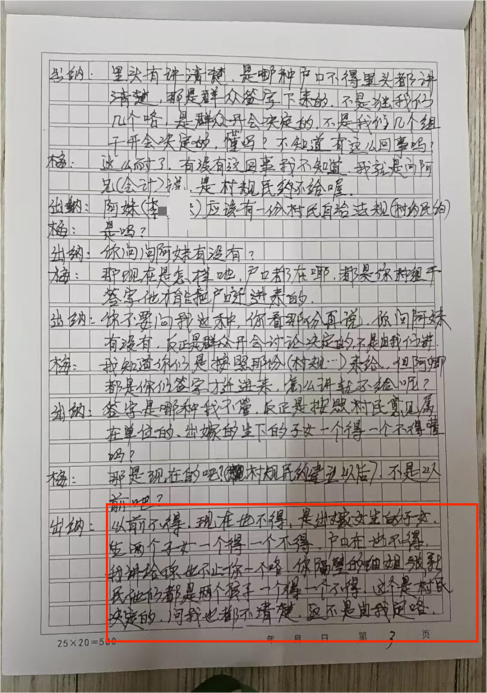 出纳：里头有讲清楚，是哪种户口不得里头都讲
清楚，那是群众签字下来的，不是独我们
几个咯，是群众开会决定的，不是我们几个组
干开会决定的，懂吗？不知道有这么回事吗？
梅：这么耐了，有没有这回事我不知道，我就是问阿
兄(会计)讲，是村规民约不给喔
出纳：阿妹(李）应该有一份村民自治法规(村规民约)
梅：是吗？
出纳：你问问阿妹有没有？
梅：那现在是怎样吔，户口都在哪，都是你村组干
签字他才能把户口迁进来的．
出纳：你不要问我这种，你看那份再说，你问阿妹
有没有，反正是群众开会讨论决定的不是由我们讲
梅：我知道你们是按照那份(村规…)来给，但阿
都是你们签字才迁进来，怎么讲就不给呢？
出纳：签字是哪种我不管，反正是按照村民意见属
在单位的，出嫁的生下的子女一个得一个不得，懂
吗？
梅：那是现在的吧？(村规民约建立以后)，不是以
前吧？
出纳：以前不得，现在也不得，是出嫁女生的子女，
生两个子女一个得一个不得，户口在也不得，
我讲给你也不止你一个咯，你隔壁的
他们都是两个孩子一个得一个不得，这个是村民
决定的，问我也都不清楚，又不是由我定咯．
25×20=500 年 月 日 第 3 页